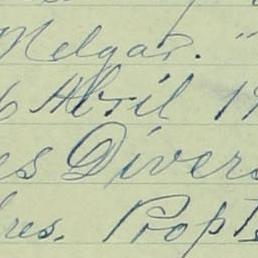 Melgar. "
6 Abril 19
es Divers
res. Propts